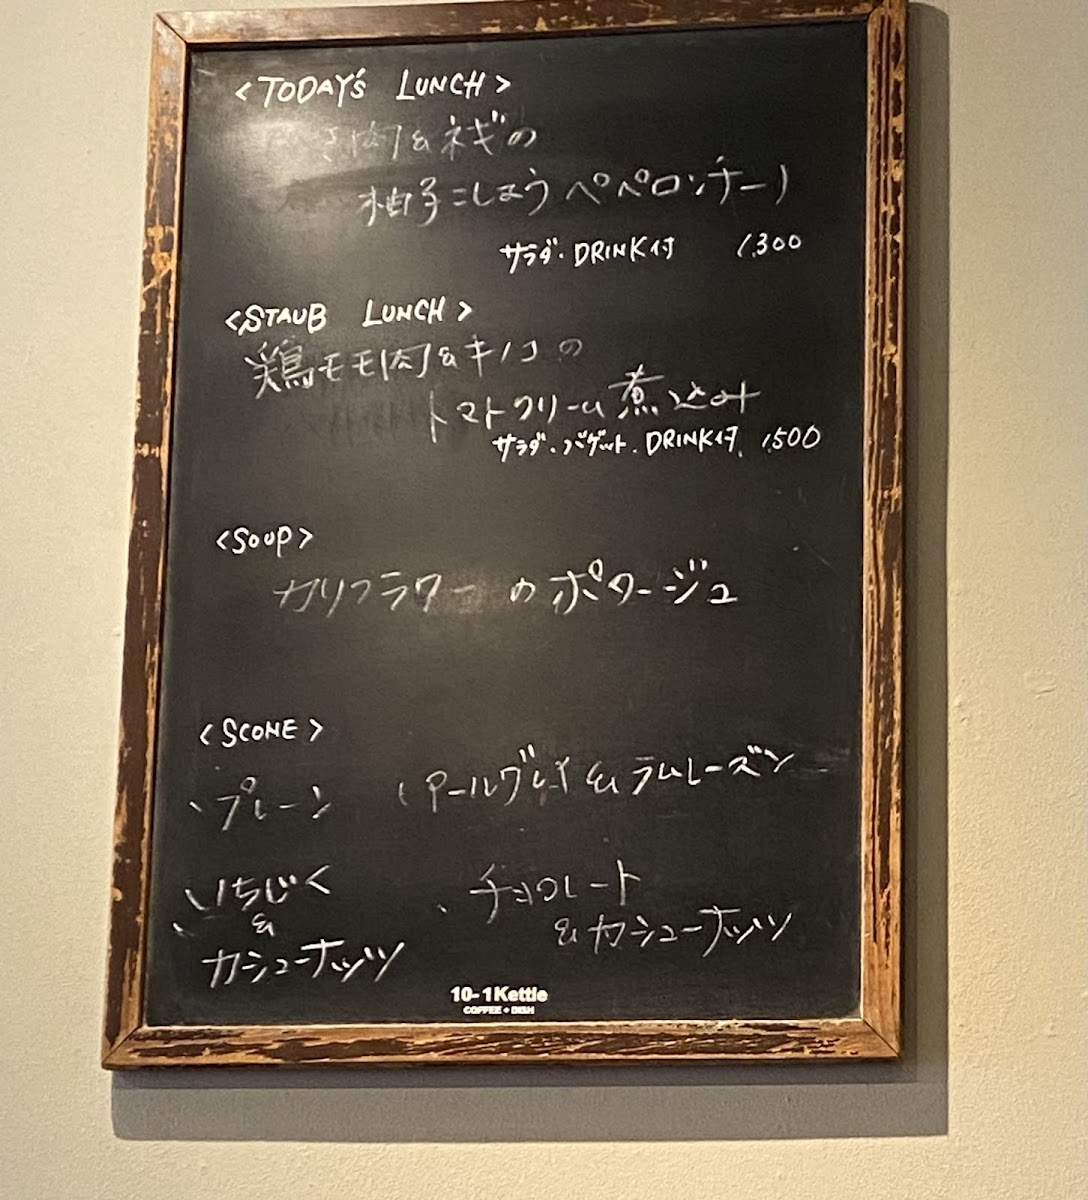 <TODAY'S LUNCH>
き肉&ネギの
柚子こしょうペペロンチーノ
サラダ・DRINK付 1,300
<STAUB LUNCH>
鶏モモ肉&キノコの
トマトクリーム煮込み
サラダ・バゲット・DRINK付 1,500
<SOUP>
カリフラワーのポタージュ
<SCONE>
、プレーン
、アールグレイ&ラムレーズン
、いちじく
&
カシューナッツ
、チョコレート
&カシューナッツ
10-1Kettle
COFFEE + DISH